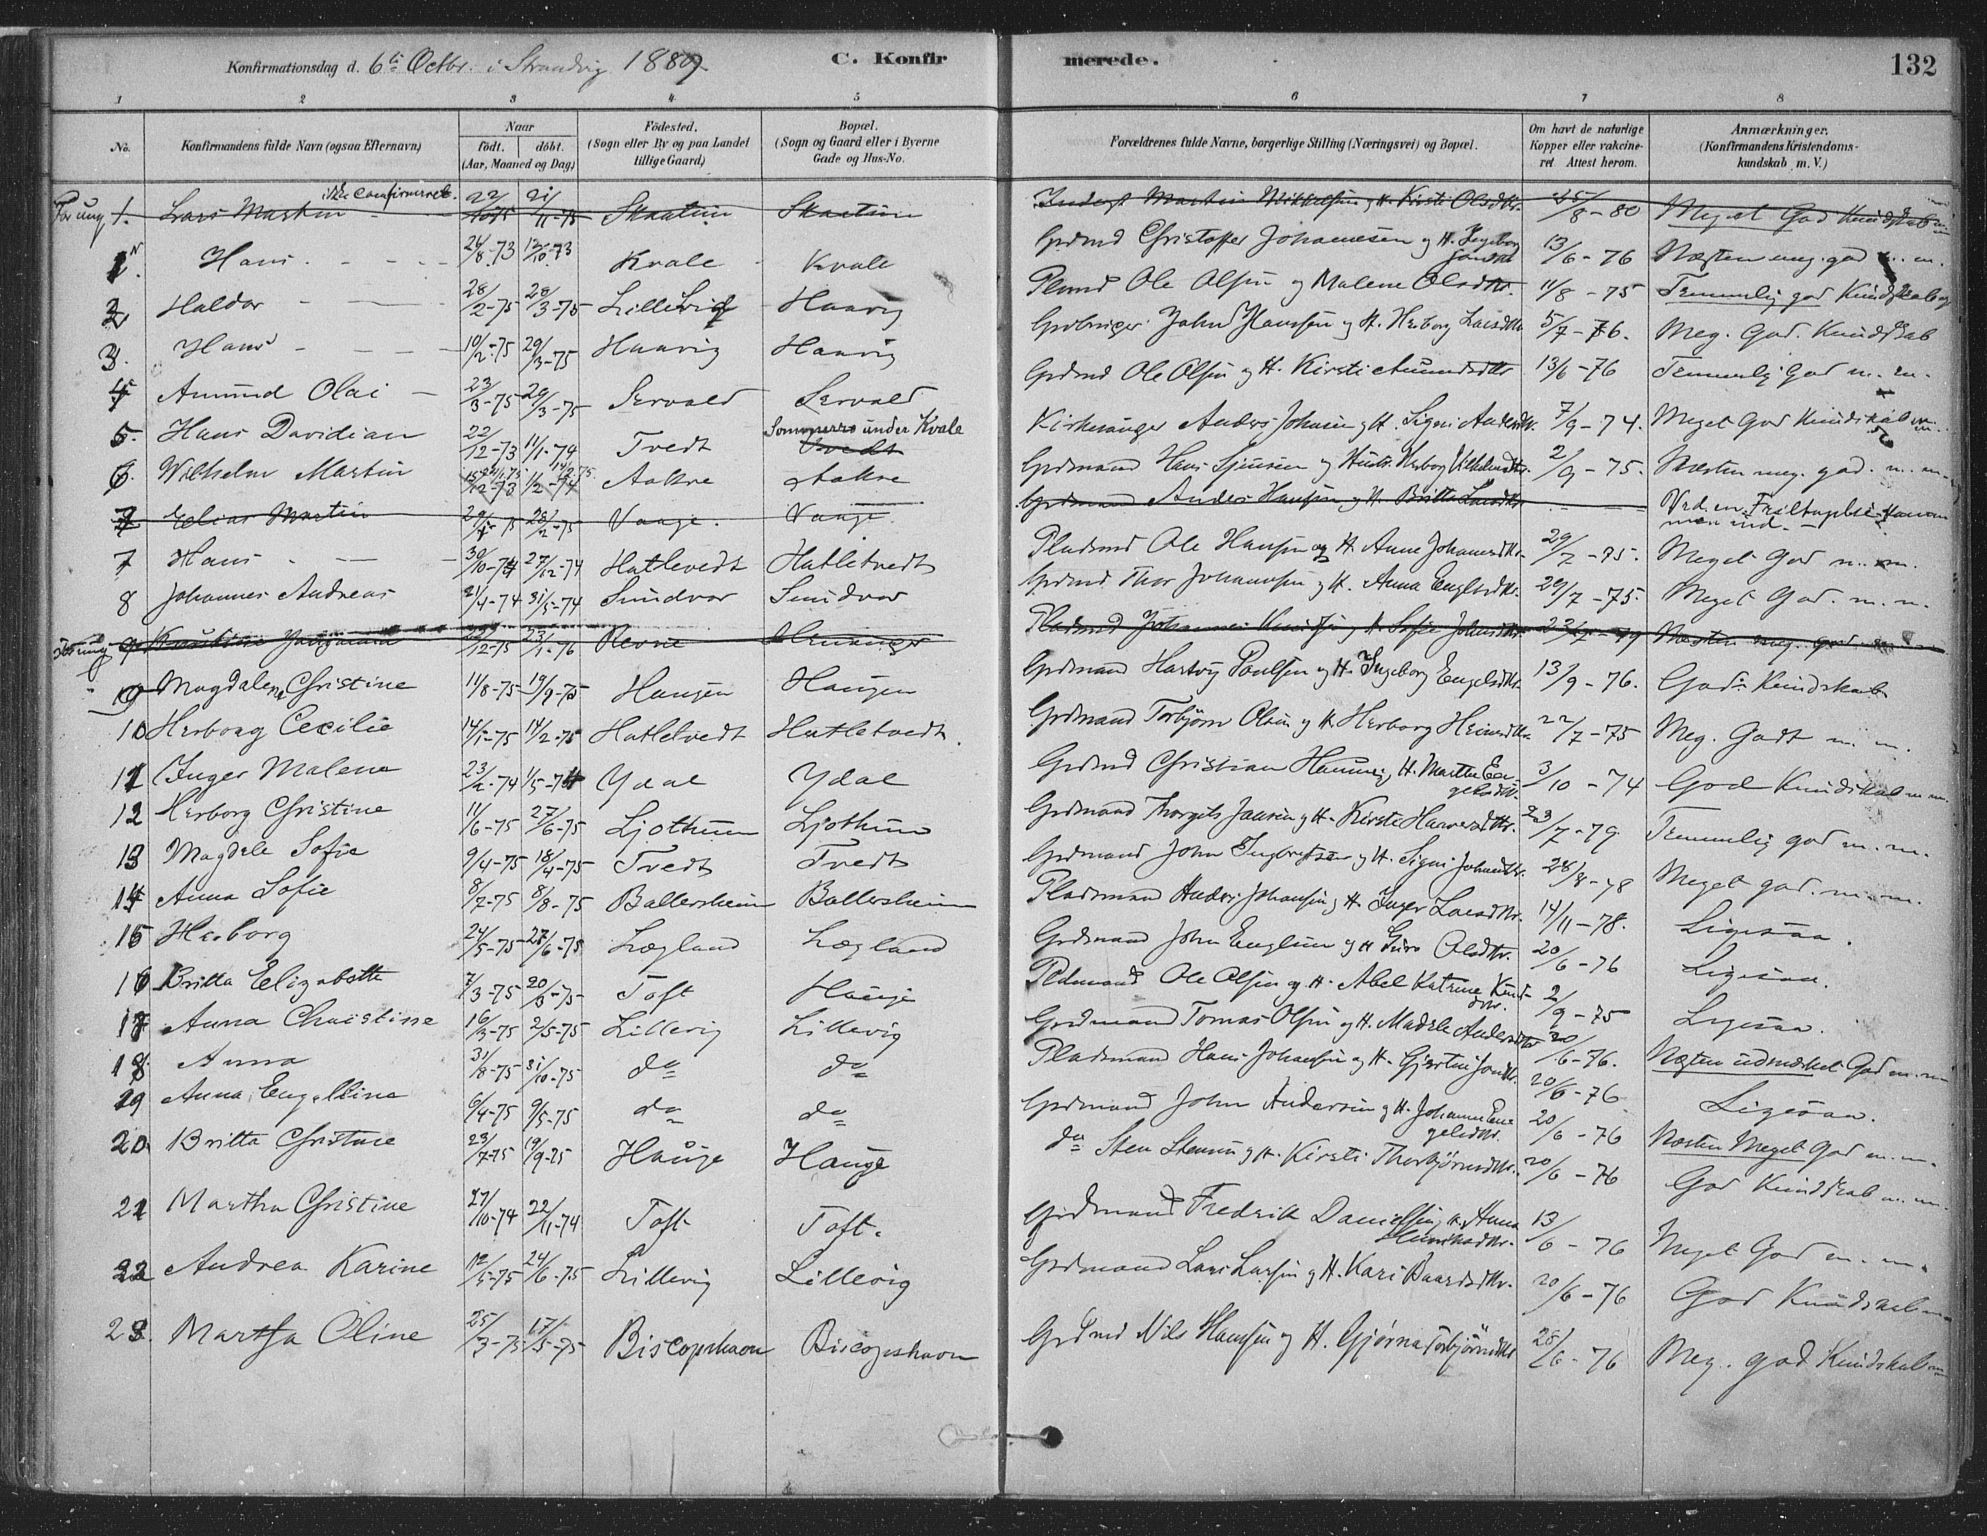 Konfirmationsdag d. 6te Octbr. i Strandvig 1889. C. Konfirmerede. 132
1 2 3 4 5 6 7 8
No. Konfirmandens fulde Navn (ogsaa Efternavn) Naar født. døbt. (Aar, Maaned og Dag) Fødested. (Sogn eller By og paa Landet tillige Gaard) Bopæl. (Sogn og Gaard eller i Byerne Gade og Hus-No. Forældrenes fulde Navne, borgerlige Stilling (Næringsvei) og Bopæl. Om havt de naturlige Kopper eller vakcineret. Attest herom. Anmærkninger. (Konfirmandens Kristendomskundskab m. V.)
For ung 1. Lars Martin ikke confirmeret. 21/11-75 Skaatun Skaatun Inderst Martin Mikkelsen og H. Kirsti Olsdtr. 25/8-80 Meget God Kundskab
1. Hans 24/8-73 12/10-73 Kvale Kvale Grdmd Christoffer Johannesen og H. Ingeborg Jonsd. 13/6-76 Næsten meg. god m. m.
2 Haldor 28/2-75 28/3-75 Lillevig Haavig Plmd Ole Olsen og Malene Olsdtr. 11/8-75 Temmelig god Kundskab
3. Hans 10/2-75 29/3-75 Haavig Haavig Grdbruger John Hansen og H. Herborg Larsdtr 5/7-76. Meg. God. Kundskab
4 Amund Olai 23/3-75 29/3-75 Servold Servold Grdmd Ole Olsen og H. Kirsti Amundsdtr 13/6-76 Temmelig God m. m.
5. Hans Davidian 22/12-73 11/1-74 Tvedt Sommerro under Kvale Tvedt Kirkesanger Anders Johnsen og H. Signi Andersdtr. 7/9-74. Meget God Kundskab m.
6. Wilhelm Martin Aakre Aakre Grdmand Hans Sjursen og Hustr. Herborg Vilhelmsdtr. 2/9-75. Næsten meg. god. m. m.
7 Elias Martin 28/2-75 Vaage. Vaage. Grdmand Anders Hansen og H. Britta Larsdtr
7 Hans 30/10-74 27/12-74 Hatlevedt Hatletvedt Pladsmd Ole Hansen og H. Anne Johannesdtr. 29/7-75. Meget God m. m.
8 Johannes Andreas 21/4-74 31/5-74 Sundvor Sundvor Grdmd Thor Johannesen og H. Anna Engelsdtr. 29/7-75. Meget God. m. m.
For ung 9 22/12-75 23/1-76 Revne Pladsmd Johannes Knudsen og H. Sofie Johnsdtr. 22/7-79 Næsten meg. god
9 Magdalena Christine 11/8-75 19/9-75 Haugen Haugen Grdmand Hartvig Poulsen og H. Ingeborg Engelsdtr. 13/9-76. God Kundskab
10 Herborg Cecilie 14/1-75 14/2-75 Hatletvedt Hatletvedt. Grdmand Torbjørn Olsen og H. Herborg Heinesdtr. 22/7-75 Meg. Godt m. m.
11 Inger Malena 23/2-74 1/5-74 Ydal Ydal Grdmd Christian Hanssen, H. Martha Engelsdtr. 3/10-74 God Kundskab m m.
12 Herborg Christine 11/6-75 27/6-75 Ljothun Ljothun Grdmand Thorgils Jansen og H. Kirsti Haavarsdtr. 23/7-79. Temmelig god m. m.
13 Magdele Sofie 9/4-75 18/4-75 Tvedt Tvedt Grdmand John Ingbrigtsen og H. Signi Johansdtr. 28/8-78 Meget god. m. m.
14 Anna Sofie 8/7-75 8/8-75 Baldersheim Baldersheim Pladsmand Anders Johansen og H. Inger Larsdtr. 14/11-78. Ligesaa.
15 Herborg 24/5-75 27/6-75 Lægland Lægland Grdmand John Englsen og H Guro Olsdtr. 20/6-76 Ligesaa.
16 Britta Elizabeth 7/3-75 20/3-75 Toft Hauge Pldmand Ole Olsen og H. Abel Katrine Knudsdtr. 2/9-75 Ligesaa.
17 Anna Christine 16/3-75 2/5-75 Lillevig Lillevig Grdmand Tomas Olsen og H. Madele Andersdtr 20/6-76. Næsten udmærket God m. m
18. Anna 31/8-75 31/10-75 do do Pladsmand Hans Johansen og H. Gjertrui Jonsdtr. 20/6-76 Ligesaa.
19 Anna Engelline 6/4-75 9/5-75 do do Grdmand John Andersen og H. Johanne Engelsdtr. 20/6-76 Næsten Meget God m. m.
20. Britta Christine 23/7-75 19/9-75 Hauge Hauge do Sten Stensen og H. Kirsti Thorbjørnsdtr. 20/6-76 God Kundskab m. m.
21 Martha Christine 27/10-74 22/11-74 Toft Toft. Grdmand Fredrik Danielsen, H. Anna Henriksdtr. 13/6-76 Meget God m. m.
22 Andrea Karine 12/5-75 24/6-75 Lillevig Lillevig Grdmand Lars Larsen og H. Kari Baardsdtr. 20/6-76 God Kundskab
23. Martha Oline 25/3-75 17/5-75 Biscopshavn Biscopshavn Grdmd Nils Hansen og H. Gjørna Torbjørnsdtr 28/6-76 Meg. god Kundskab